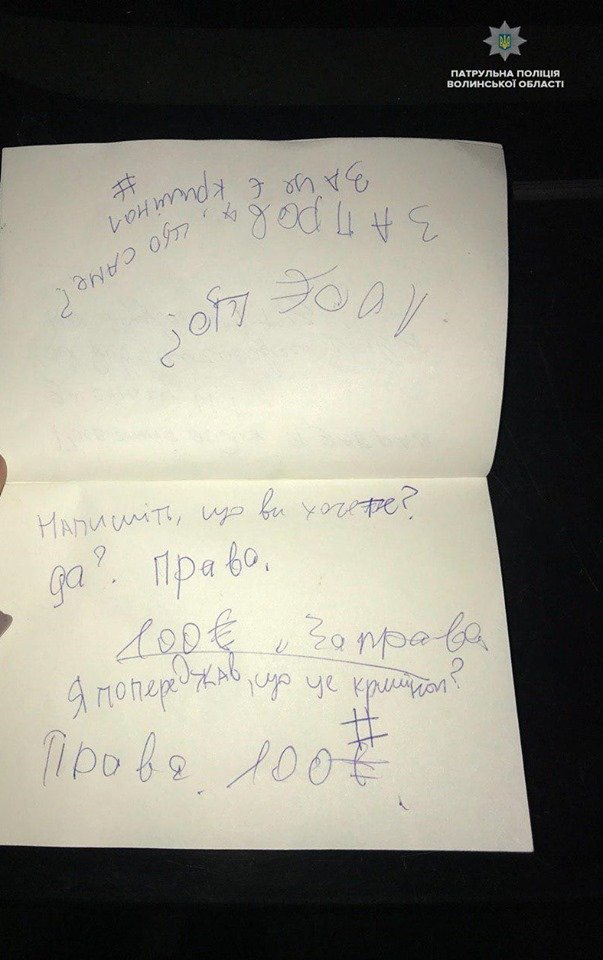 ПАТРУЛЬНА ПОЛІЦІЯ
ВОЛИНСЬКОЇ ОБЛАСТІ
100€ що?
ЗА ПРОВ що саме?
За це є кримінал
#
Напишіть, що ви хочете?
да?. Права.
100€ "За права
Я попереджав, що це кримінал?
#
Права. 100€.